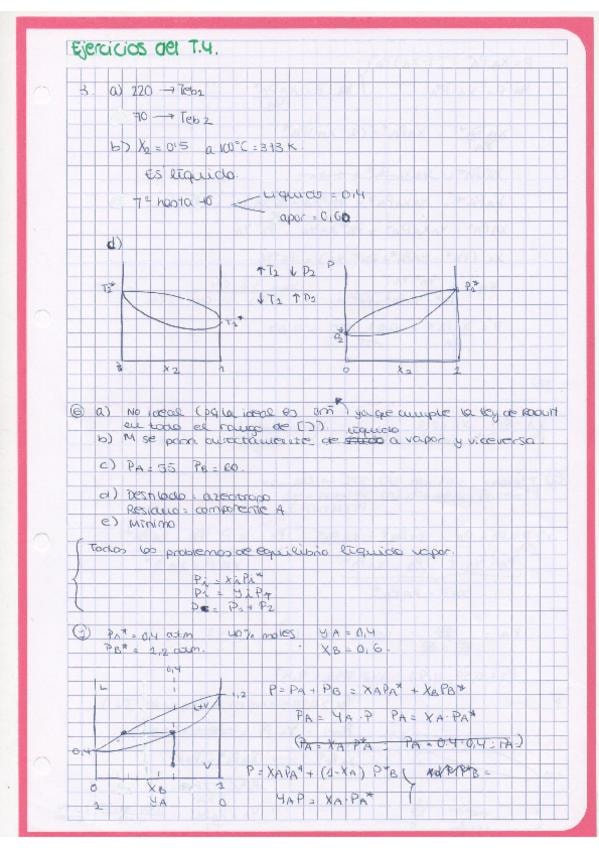 Ejercicios del T.4.
3. a) 220 → Teb1
70 → Teb2
b) X2 = 0'5 a 100°C = 373 K.
Es líquido.
Tª hasta
Líquido = 0,4
apor = 0,60
d)
T2* T1* ↑T2 ↓P2 P P1*
↓T2 ↑P2 P2*
X2 1 0 X2 1
6 a) No ideal ( la ideal es ) ya que cumple la ley de Raoult
en todo el rango de [ ])
líquido
b) M se pasa directamente de a vapor y viceversa.
c) PA = 55 PB = 60.
d) Destilado = azeotropo
Residuo = componente A
e) Mínimo
Todos los problemas de equilibrio líquido vapor.
Pi = xi Pi*
Pi = yi PT
P = P1 + P2
7 PA* = 0,4 atm 40% moles YA = 0,4
PB* = 1,2 atm. XB = 0,6.
0,4
L L+V 1,2 P = PA + PB = XAPA* + XBPB*
PA = YA · P PA = XA · PA*
0,4 (PA = XA P*A PA = 0,4 · 0,4 = PA)
V P = XAPA* + (1-XA) P*B
0 XB 1 YAP = XA · PA*
1 YA 0